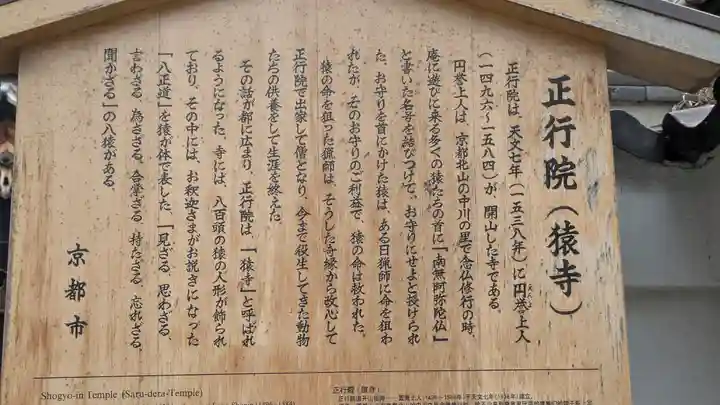 正行院（猿寺）
正行院は、天文七年（一五三八年）に円誉上人
えんよ
（一四九六～一五八四）が、開山した寺である。
円誉上人は、京都北山の中川の里で念仏修行の時、
庵に遊びに来る多くの猿たちの首に「南無阿弥陀仏」
と書いた名号を結びつけて、お守りにせよと授けられ
た。お守りを首にかけた猿は、ある日猟師に命を狙わ
れたが、そのお守りのご利益で、猿の命は救われた。
猿の命を狙った猟師は、そうした奇縁から改心して
正行院で出家して僧となり、今まで殺生してきた動物
たちの供養をして生涯を終えた。
その話が都に広まり、正行院は、「猿寺」と呼ばれ
るようになった。寺には、八百頭の猿の人形が飾られ
ており、その中には、お釈迦さまがお説きになった
「八正道」を猿が体で表した、「見ざる、思わざる、
言わざる、為さざる、合掌ざる、持たざる、忘れざる、
聞かざる」の八猿がある。
京都市
Shogyo-in Temple (Saru-dera Temple)
正行院（猿寺）